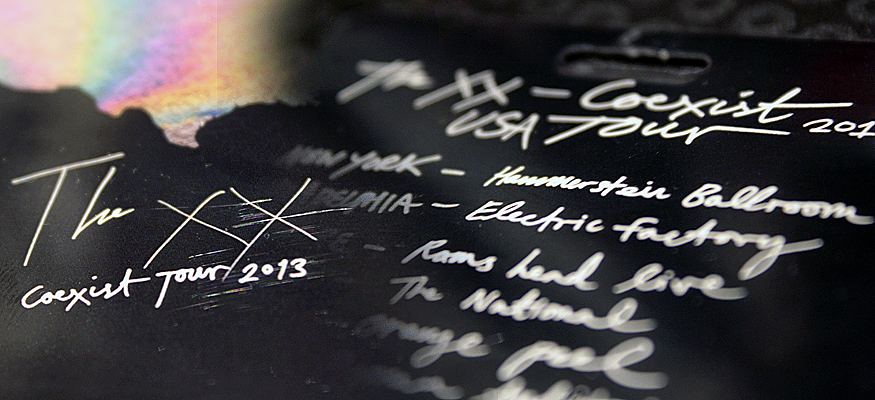 The XX
Coexist Tour 2013
The XX - Coexist
USA Tour 201
NEW YORK - Hammerstein Ballroom
ADELPHIA - Electric factory
E - Rams head live
The National
orange peel